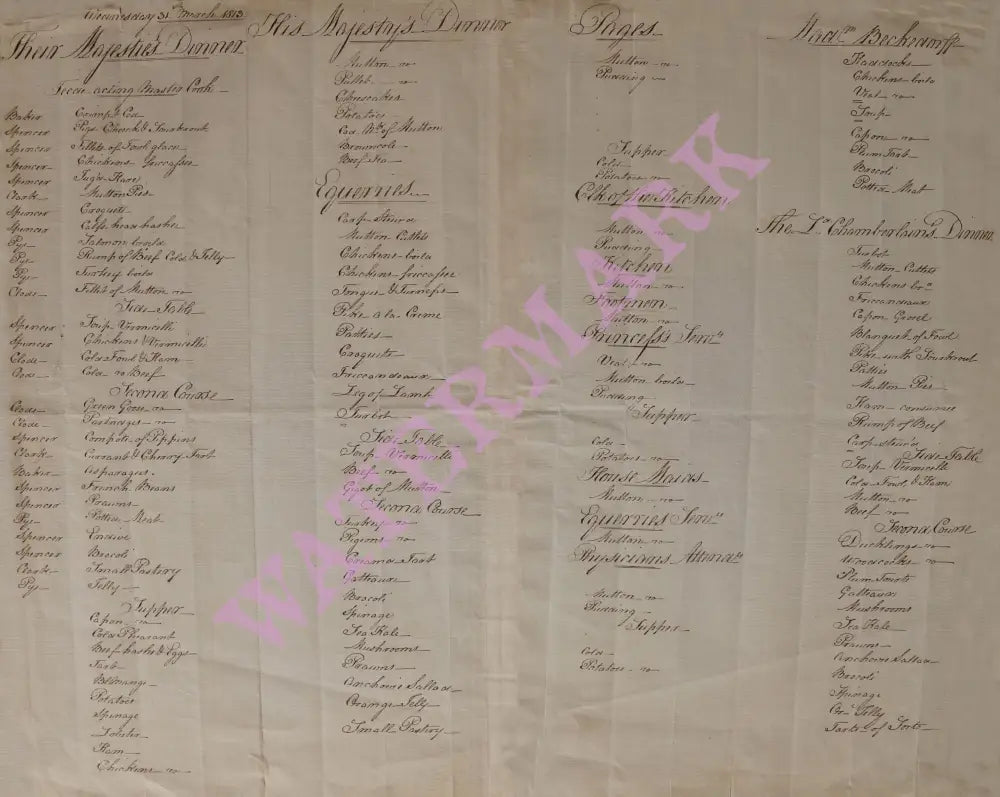 Wednesday 31st March 1813
Their Majesties Dinner
Ticcie acting Master Cook
Baker Crimp Cod
Spencer Pigs Cheek & Sourkrout
Spencer Fillets of Fowl glace
Spencer Chickens fricassee
Spencer Jug'd Hare
Clark Mutton Pies
Spencer Croquets
Spencer Calfs head hashee
Pye Salmon boild
Pye Rump of Beef Cold & Jelly
Pye Turkey boild
Clode Fillet of Mutton ro
Side Table
Spencer Soup Vermicelli
Spencer Chickens & Vermicelli
Clode Cold Fowl & Ham
Clode Cold ro Beef
Second Course
Clode Green Goose ro
Clode Partridges ro
Spencer Compote of Pippins
Clark Currant & Cherry Tart
Baker Asparagus
Spencer French Beans
Spencer Prawns
Pye Potted Meat
Spencer Endive
Spencer Brocoli
Clark Small Pastery
Pye Jelly
Supper
Capon ro
Cold Pheasant
Beef hashd & Eggs
Tart
Blomange
Potatoes
Spinage
Lobster
Ham
Chickens ro
His Majesty's Dinner
Mutton ro
Pullet ro
Cheescakes
Potatoes
Cod Nk of Mutton
Browncole
Beef Tea
Equerries
Carp Stewd
Mutton Cutlets
Chickens boild
Chickens fricassee
Tongue & Turneps
Pike a la Creme
Patties
Croquets
Fricandeaux
Leg of Lamb
Turbot
Side Table
Soup Vermicelli
Beef ro
Gigot of Mutton
Second Course
Turkey ro
Pigeons ro
Cream'd Tart
Gatteaux
Brocoli
Spinage
Sea Kale
Mushrooms
Prawns
Anchovie Sallad
Orange Jelly
Small Pastery
Pages
Mutton ro
Pudding
Supper
Cold
Potatoes ro
Clk of the Kitchen
Mutton ro
Pudding
Kitchen
Mutton ro
Footmen
Mutton ro
Princess's Servts
Veal ro
Mutton boild
Pudding
Supper
Cold
Potatoes ro
House Maids
Mutton ro
Equerries Servts
Mutton ro
Physicians Attende
Mutton ro
Pudding
Supper
Cold
Potatoes ro
Madm Beckedorff
Haddocks
Chickens boild
Veal ro
Soup
Capon ro
Plum Tart
Brocoli
Potted Meat
The Ld Chamberlain's Dinner
Turbot
Mutton Cutlets
Chickens bod
Fricandeaux
Capon Gravel
Blanquet of Fowl
Pike with Sourkrout
Patties
Mutton Pies
Ham consumee
Rump of Beef
Carp stewd
Side Table
Soup Vermicelli
Cold Fowl & Ham
Mutton ro
Beef ro
Second Course
Ducklings ro
Woodcocks ro
Plum Tourte
Gatteaux
Mushrooms
Sea Kale
Prawns
Anchovie Sallad
Brocoli
Spinage
Or Jelly
Tarts of Sorts
WATERMARK